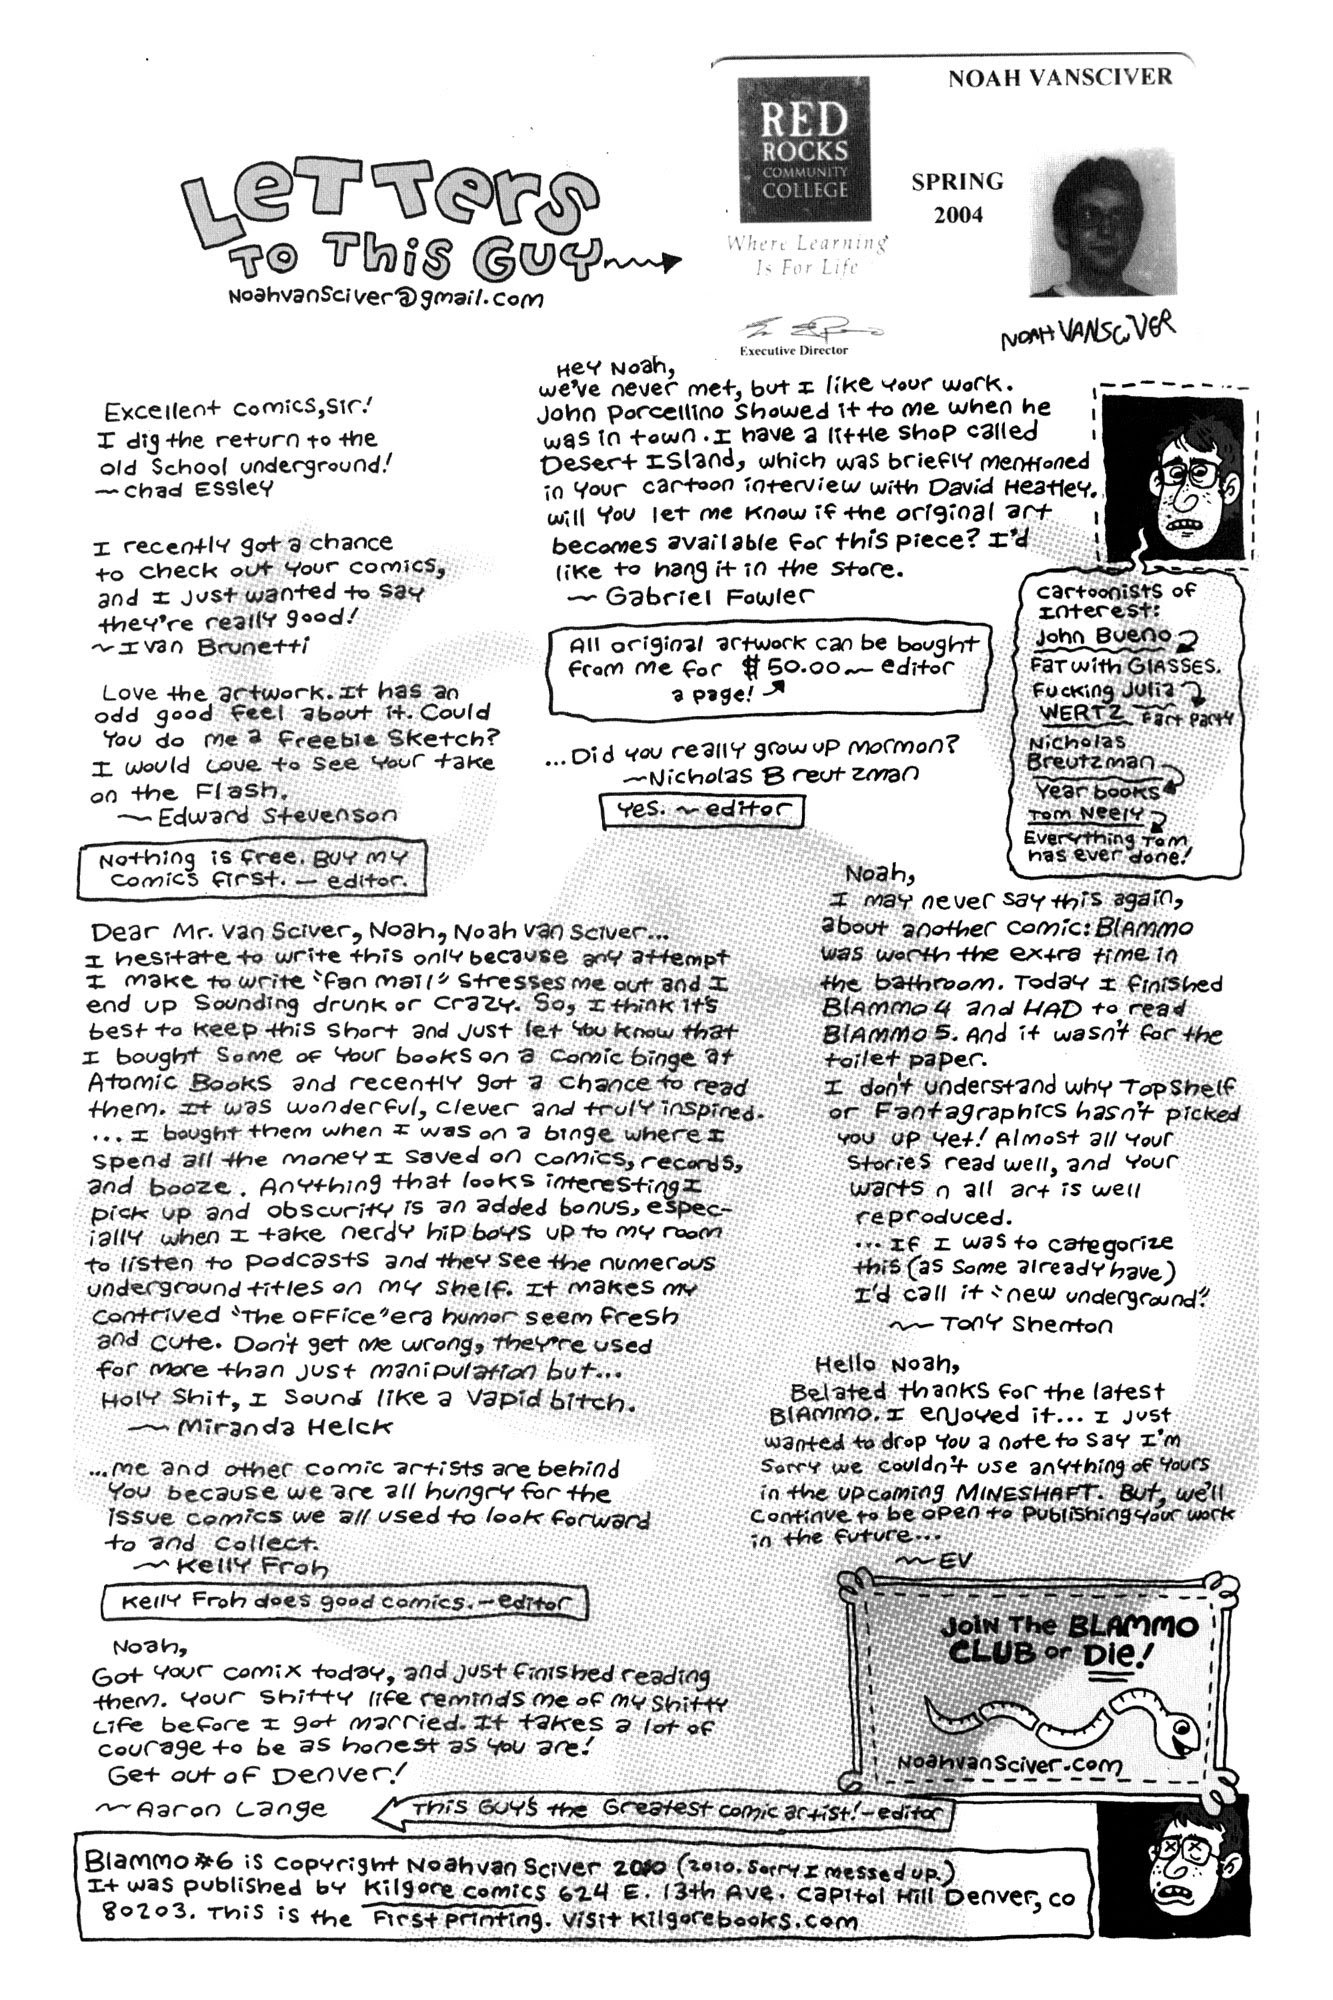 NOAH VANSCIVER
RED
ROCKS
COMMUNITY
COLLEGE
SPRING
2004
Where Learning
Is For Life
Executive Director
NOAH VANSCIVER
LETTERS
TO THIS GUY
NoahvanSciver@gmail.com
Excellent comics, sir!
I dig the return to the
old school underground!
~Chad Essley
I recently got a chance
to check out your comics,
and I just wanted to say
they're really good!
~Ivan Brunetti
Love the artwork. It has an
odd good feel about it. Could
you do me a freebie sketch?
I would love to see your take
on the Flash.
~Edward Stevenson
Nothing is free. Buy my
comics first. — editor.
Hey Noah,
we've never met, but I like your work.
John Porcellino showed it to me when he
was in town. I have a little shop called
Desert Island, which was briefly mentioned
in your cartoon interview with David Heatley.
will you let me know if the original art
becomes available for this piece? I'd
like to hang it in the store.
~ Gabriel Fowler
All original artwork can be bought
from me for $50.00 — editor
a page!
...Did you really grow up mormon?
~Nicholas Breutzman
Yes. ~ editor
cartoonists of
Interest:
John Bueno
Fat with Glasses.
Fucking Julia
WERTZ Fart Party
Nicholas
Breutzman
Year books
Tom Neely
Everything Tom
has ever done!
Dear Mr. Van Sciver, Noah, Noah Van Sciver...
I hesitate to write this only because any attempt
I make to write "fan mail" stresses me out and I
end up sounding drunk or crazy. So, I think it's
best to keep this short and just let you know that
I bought some of your books on a comic binge at
Atomic Books and recently got a chance to read
them. It was wonderful, clever and truly inspired.
...I bought them when I was on a binge where I
spend all the money I saved on comics, records,
and booze. Anything that looks interesting I
pick up and obscurity is an added bonus, espec-
ially when I take nerdy hip boys up to my room
to listen to podcasts and they see the numerous
underground titles on my shelf. It makes my
contrived "The Office" era humor seem fresh
and cute. Don't get me wrong, they're used
for more than just manipulation but...
Holy shit, I sound like a vapid bitch.
~ Miranda Helck
...me and other comic artists are behind
you because we are all hungry for the
issue comics we all used to look forward
to and collect.
~ Kelly Froh
Kelly Froh does good comics. -editor
Noah,
Got your comix today, and just finished reading
them. Your shitty life reminds me of my shitty
life before I got married. It takes a lot of
courage to be as honest as you are!
Get out of Denver!
~Aaron Lange
This guy's the greatest comic artist! -editor
Noah,
I may never say this again,
about another comic: BLAMMO
was worth the extra time in
the bathroom. Today I finished
BLAMMO 4 and HAD to read
BLAMMO 5. And it wasn't for the
toilet paper.
I don't understand why TopShelf
or Fantagraphics hasn't picked
you up yet! Almost all your
stories read well, and your
warts n all art is well
reproduced.
... If I was to categorize
this (as some already have)
I'd call it "new underground."
~ Tony Shenton
Hello Noah,
Belated thanks for the latest
BLAMMO. I enjoyed it... I just
wanted to drop you a note to say I'm
sorry we couldn't use anything of yours
in the upcoming MINESHAFT. But, we'll
continue to be open to publishing your work
in the future...
~EV
JOIN THE BLAMMO
CLUB or DIE!
NoahvanSciver.com
Blammo #6 is copyright Noah van Sciver 2010 (2010. Sorry I messed up.)
It was published by Kilgore comics 624 E. 13th Ave. Capitol Hill Denver, co
80203. This is the first printing. Visit Kilgorebooks.com